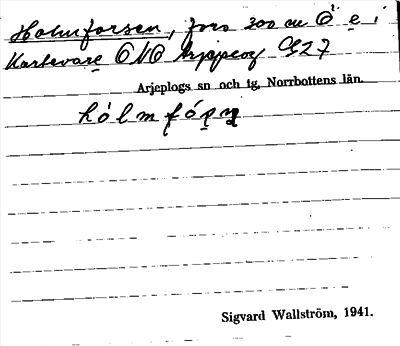 Holmforsen, fors 300 m Ö e i
Karlevare ONO Arjeplog G27
Arjeplogs sn och tg, Norrbottens län.
hólmfóṣṇ
Sigvard Wallström, 1941.